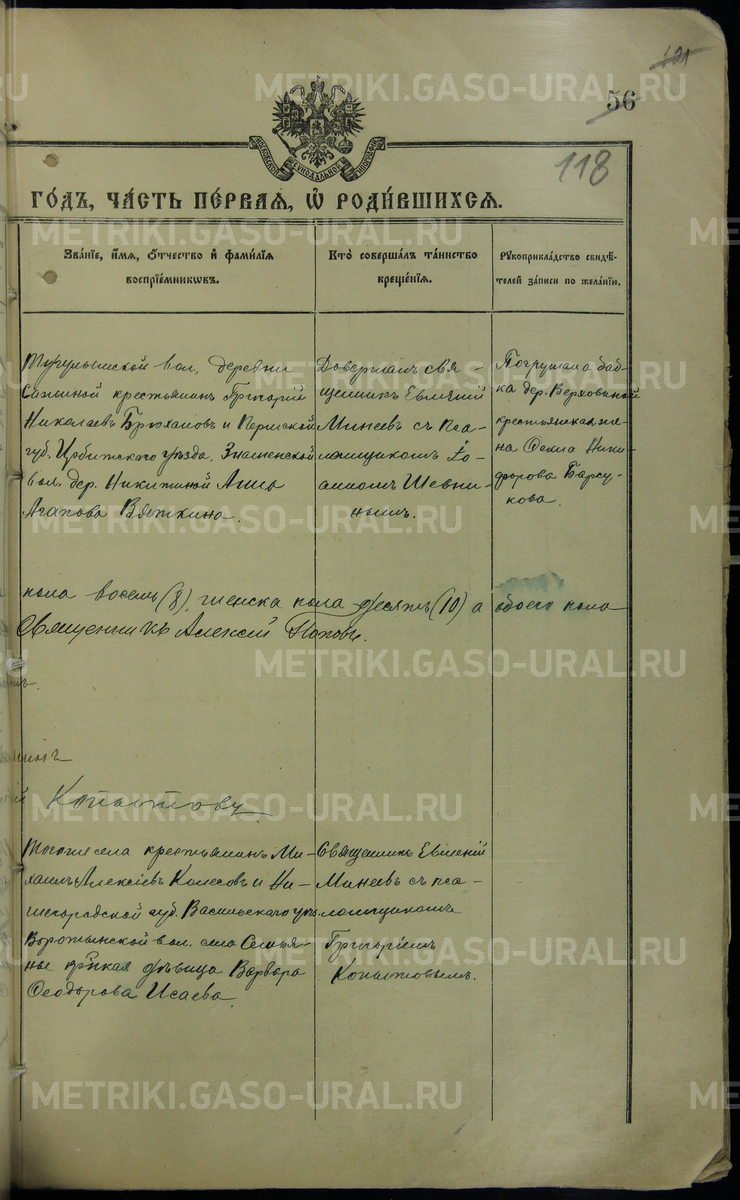 121
56
118
МОСКОВСКОЙ СѴНОДАЛЬНОЙ ТИПОГРАФІИ
ГО́ДЪ, ЧА́СТЬ ПЕ́РВАѦ, Ѡ҆ РОДИ́ВШИХСѦ.
Зва́нїе, и҆́мѧ, ѻ҆́тчество и҆ фами́лїѧ
воспрїе́мникѡвъ.
Кто̀ соверша́лъ та́инство
креще́нїѧ.
Рꙋкоприкла́дство свидѣ́-
телей за́писи по жела́нїю.
вол., деревни
крестьянинъ Григорій
Николаевъ Брюхановъ и Пермской
губ. Ирбитскаго уѣзда, Знаменской
вол. дер. Никитиной Анна
Агапова Вяткина.
Довершалъ свя-
щенникъ Евгеній
Минеевъ съ пса-
ломщикомъ Іо-
анномъ Шевни-
нымъ.
Погружала баб-
ка дер.
крестьянская же-
на Ники-
форова Барсу-
кова.
пола восемь (8), женска пола десять (10) а обоего пола
Священникъ Алексій Поповъ.
Копытову
Тогоже села крестьянинъ Ми-
хаилъ Алексіевъ Колесовъ и Ни-
жегородской губ. Васильскаго уѣз.
Воротынской вол. села Семья-
ны дѣвица Варвара
Феодорова Исаева.
Священникъ Евгеній
Минеевъ съ пса-
ломщикомъ
Григоріемъ
Копытовымъ.
METRIKI.GASO-URAL.RU